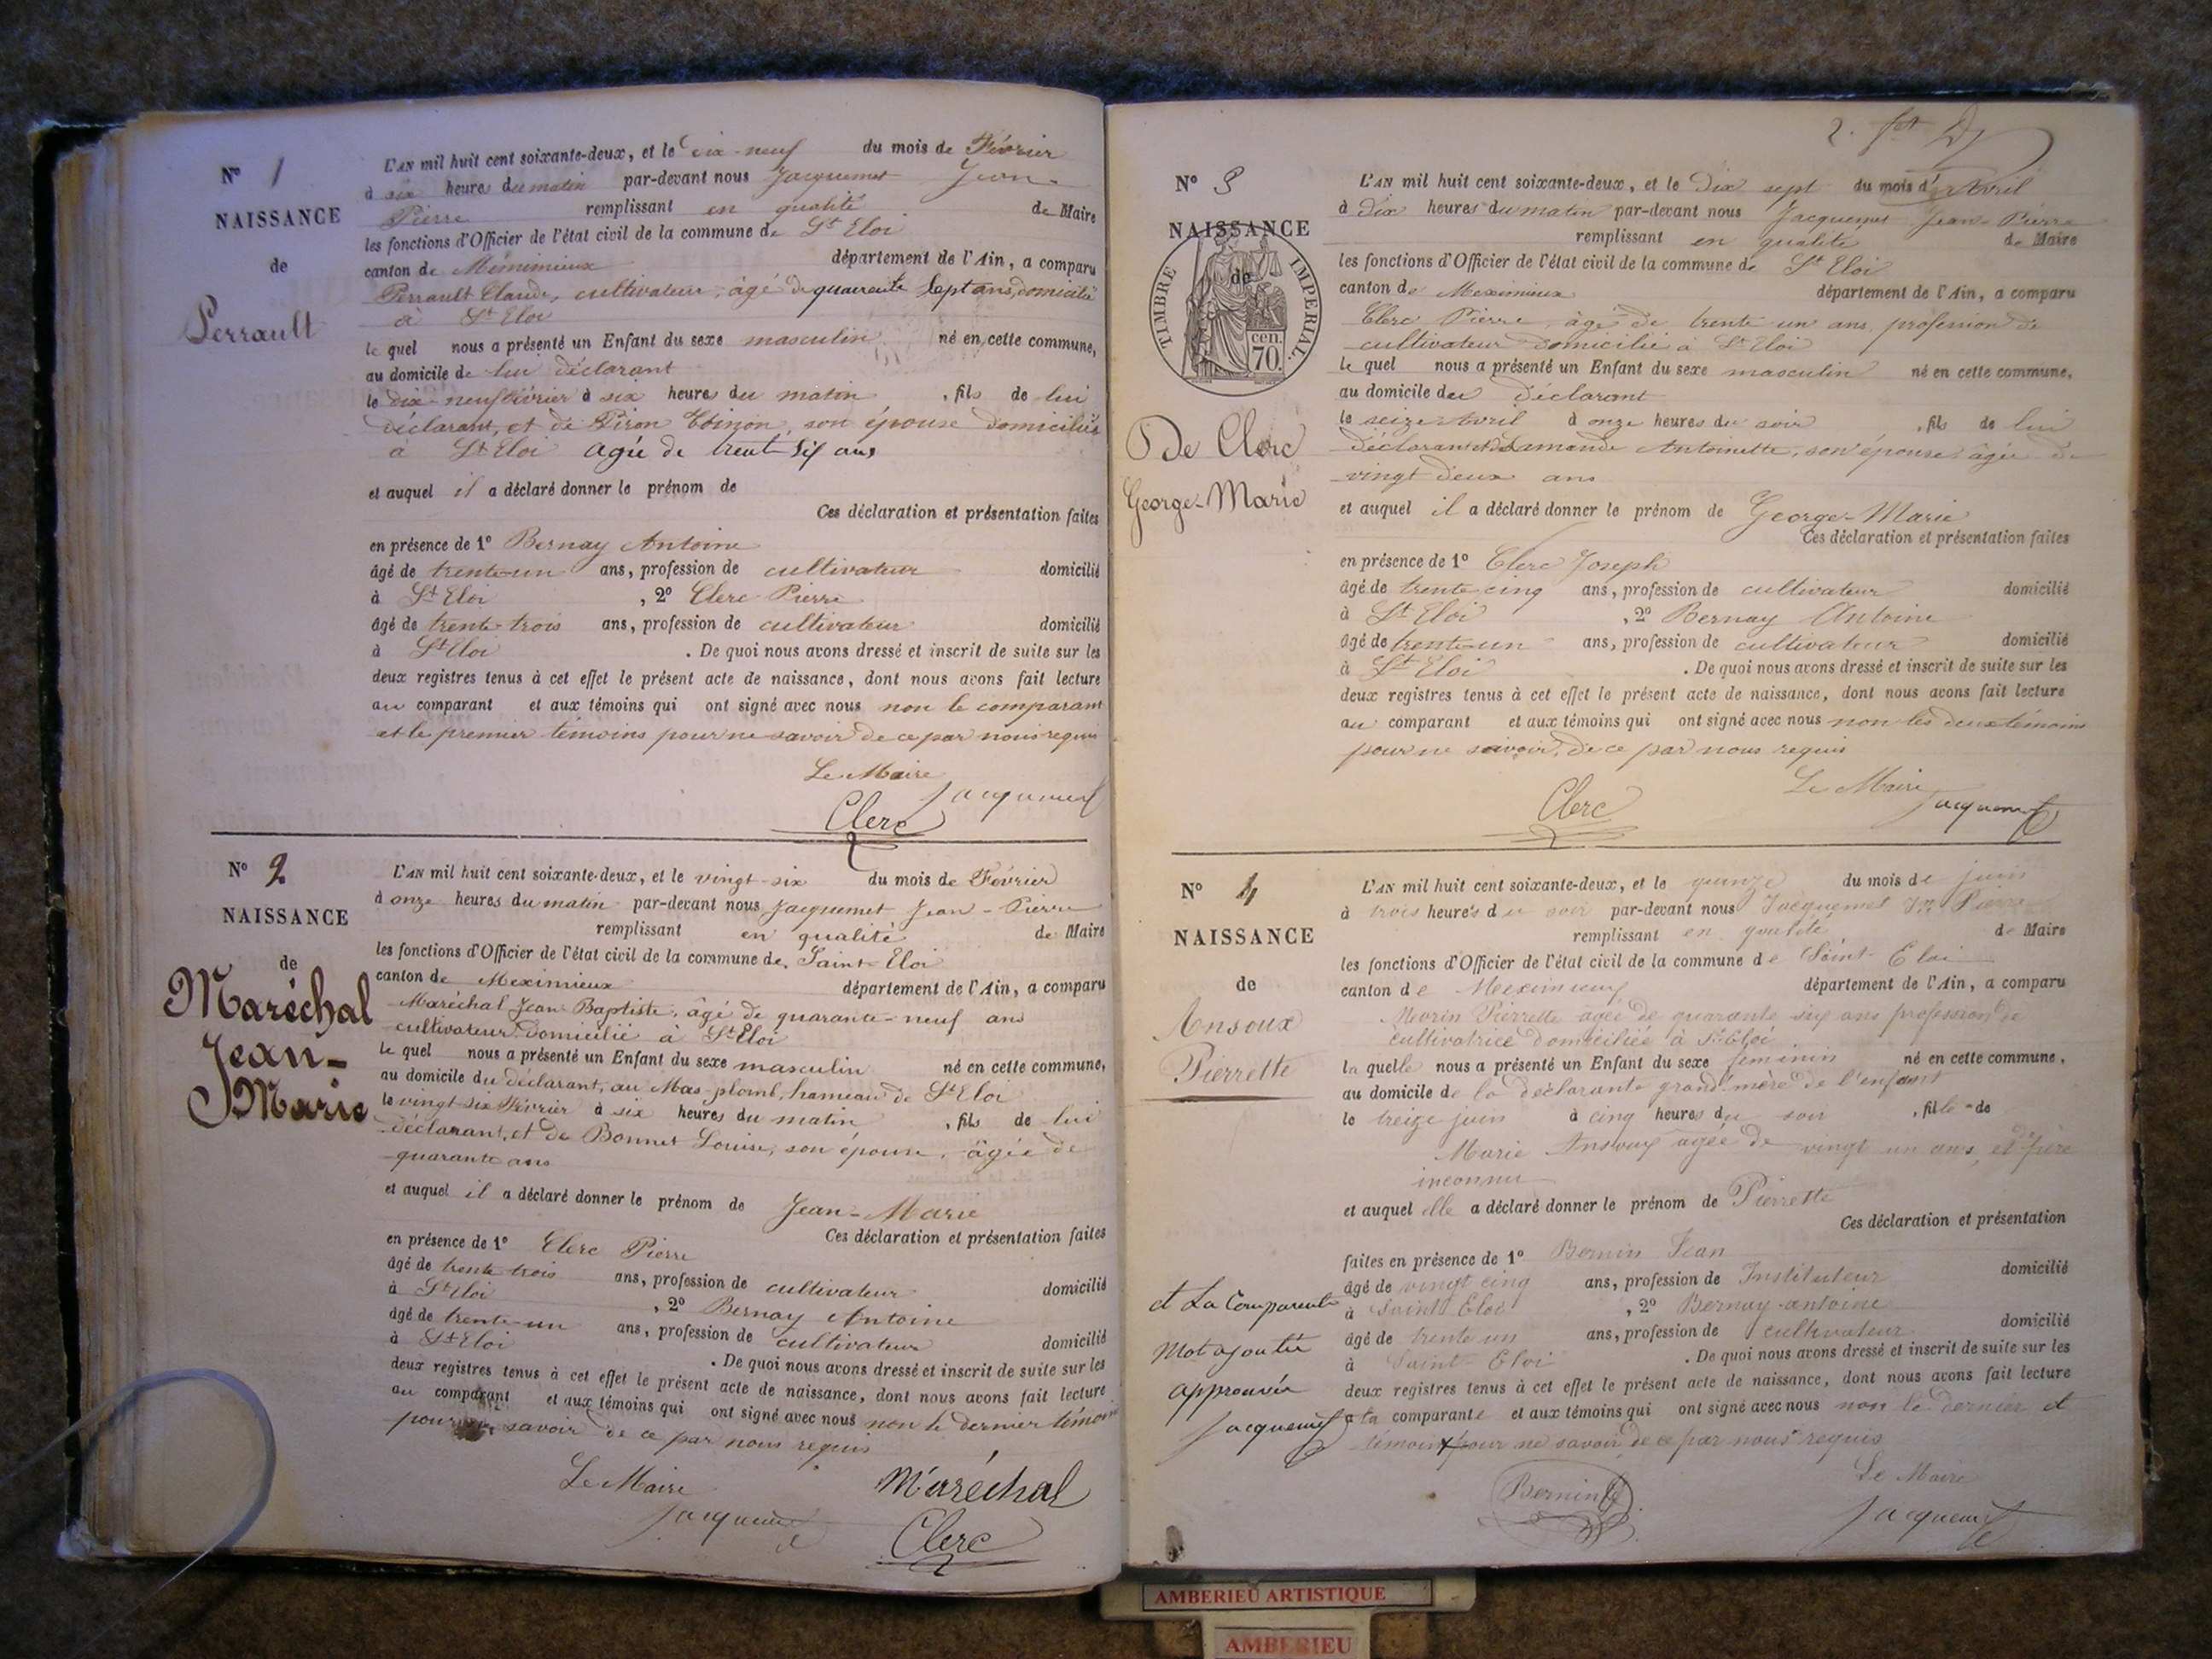 N° 1
NAISSANCE
de
Perrault
L'AN mil huit cent soixante-deux, et le dix-neuf du mois de Février
à six heures du matin par-devant nous Jacquemet Jean-
Pierre remplissant en qualité de Maire
les fonctions d'Officier de l'état civil de la commune de St Eloi
canton de Méximieux département de l'Ain, a comparu
Perrault Claude, cultivateur, âgé de quarente sept ans, domicilié
à St Eloi
le quel nous a présenté un Enfant du sexe masculin né en cette commune,
au domicile de lui déclarant
le dix-neuf février à six heures du matin , fils de lui
déclarant, et de Piron , son épouse domiciliés
à St Eloi agée de trent six ans
et auquel il a déclaré donner le prénom de
Ces déclaration et présentation faites
en présence de 1° Bernay Antoine
âgé de trente-un ans, profession de cultivateur domicilié
à St Eloi , 2° Clerc Pierre
âgé de trente-trois ans, profession de cultivateur domicilié
à St Eloi . De quoi nous avons dressé et inscrit de suite sur les
deux registres tenus à cet effet le présent acte de naissance, dont nous avons fait lecture
au comparant et aux témoins qui ont signé avec nous non le comparant
et le premier témoins pour ne savoir de ce par nous requis
Le Maire
Jacquemet
Clerc
N° 2
NAISSANCE
de
Maréchal
Jean-
Marie
L'AN mil huit cent soixante-deux, et le vingt-six du mois de Février
à onze heures du matin par-devant nous Jacquemet Jean-Pierre
remplissant en qualité de Maire
les fonctions d'Officier de l'état civil de la commune de Saint-Eloi
canton de Meximieux département de l'Ain, a comparu
Maréchal Jean-Baptiste, âgé de quarante-neuf ans
cultivateur domicilié à St Eloi
le quel nous a présenté un Enfant du sexe masculin né en cette commune,
au domicile du déclarant, au Mas-plomb, hameau de St Eloi
le vingt-six Février à six heures du matin , fils de lui
déclarant, et de Bonnet Louise, son épouse, âgée de
quarante ans
et auquel il a déclaré donner le prénom de Jean-Marie
Ces déclaration et présentation faites
en présence de 1° Clerc Pierre
âgé de trente trois ans, profession de cultivateur domicilié
à St Eloi , 2° Bernay Antoine
âgé de trente-un ans, profession de cultivateur domicilié
à St Eloi . De quoi nous avons dressé et inscrit de suite sur les
deux registres tenus à cet effet le présent acte de naissance, dont nous avons fait lecture
au comparant et aux témoins qui ont signé avec nous non le dernier témoin
pour ne savoir de ce par nous requis
Le Maire
Jacquemet
Maréchal
Clerc
2.
N° 3
NAISSANCE
de
TIMBRE IMPERIAL.
cen.
70.
De Clerc
George-Marie
L'AN mil huit cent soixante-deux, et le Dix sept du mois d'Avril
à Dix heures du matin par-devant nous Jacquemet Jean-Pierre
remplissant en qualité de Maire
les fonctions d'Officier de l'état civil de la commune de St Eloi
canton de Meximieux département de l'Ain, a comparu
Clerc Pierre, âgé de trente un ans, profession de
cultivateur domicilié à St Eloi
le quel nous a présenté un Enfant du sexe masculin né en cette commune,
au domicile du déclarant
le seize Avril à onze heures du soir , fils de lui
déclarant et de Lamande Antoinette, son épouse âgée de
vingt deux ans
et auquel il a déclaré donner le prénom de George-Marie
Ces déclaration et présentation faites
en présence de 1° Clerc Joseph
âgé de trente cinq ans, profession de cultivateur domicilié
à St Eloi , 2° Bernay Antoine
âgé de trente-un ans, profession de cultivateur domicilié
à St Eloi . De quoi nous avons dressé et inscrit de suite sur les
deux registres tenus à cet effet le présent acte de naissance, dont nous avons fait lecture
au comparant et aux témoins qui ont signé avec nous non les deux témoins
pour ne savoir, de ce par nous requis
Le Maire
Jacquemet
Clerc
N° 4
NAISSANCE
de
Ansoux
Pierrette
L'AN mil huit cent soixante-deux, et le quinze du mois de juin
à trois heures du soir par-devant nous Jacquemet Jn Pierre
remplissant en qualité de Maire
les fonctions d'Officier de l'état civil de la commune de Saint Eloi
canton de Meximieux département de l'Ain, a comparu
Morin Pierrette agée de quarante six ans profession de
cultivatrice domiciliée à St Eloi
la quelle nous a présenté un Enfant du sexe feminin né en cette commune,
au domicile de la déclarante grand'mère de l'enfant
le treize juin à cinq heures du soir , fille de
Marie Ansoux agée de vingt un ans, et de père
inconnu
et auquel elle a déclaré donner le prénom de Pierrette
Ces déclaration et présentation
faites en présence de 1° Bernin Jean
âgé de vingt cinq ans, profession de Instituteur domicilié
à Saint Eloi , 2° Bernay antoine
âgé de trente un ans, profession de cultivateur domicilié
à Saint-Eloi . De quoi nous avons dressé et inscrit de suite sur les
deux registres tenus à cet effet le présent acte de naissance, dont nous avons fait lecture
à la comparante et aux témoins qui ont signé avec nous non le dernier et
témoin pour ne savoir de ce par nous requis
et La Comparente
Mot ajoutée
approuvée
Jacquemet
Le Maire
Bernin
Jacquemet
AMBERIEU ARTISTIQUE
AMBERIEU